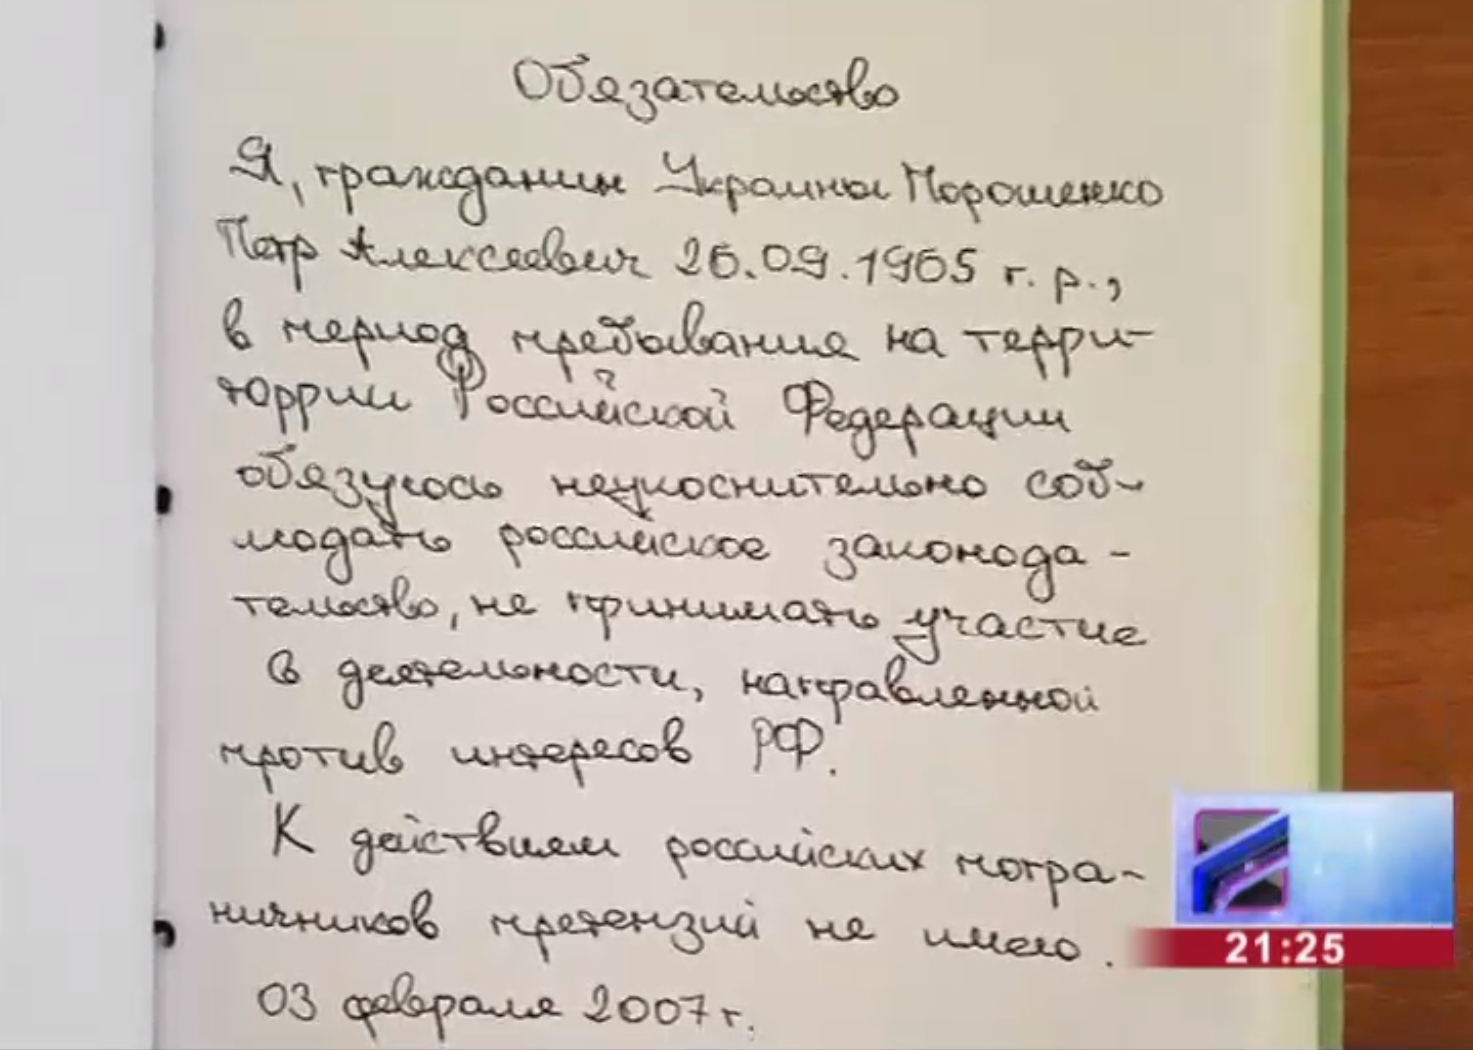 Обязательство
Я, гражданин Украины Порошенко
Петр Алексеевич 26.09.1965 г. р.,
в период пребывания на терри-
торрии Российской Федерации
обязуюсь неукоснительно соб-
людать российское законода-
тельство, не принимать участие
в деятельности, направленной
против интересов РФ.
К действиям российских погра-
ничников претензий не имею.
03 февраля 2007 г.
21:25